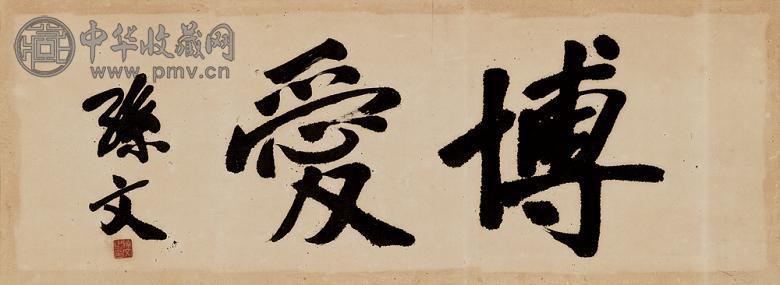 博愛
孫文
中华收藏网
www.pmv.cn